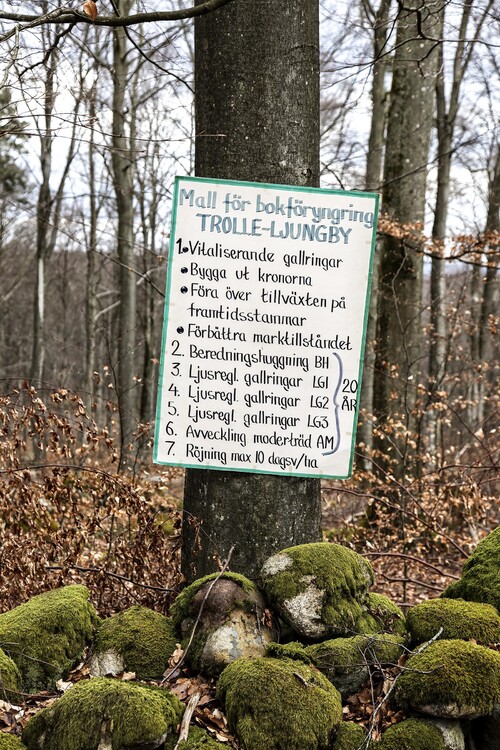 Mall för bokföryngring
TROLLE-LJUNGBY
1. • Vitaliserande gallringar
• Bygga ut kronorna
• Föra över tillväxten på
framtidsstammar
• Förbättra marktillståndet
2. Beredningshuggning BH
3. Ljusregl. gallringar LG1
4. Ljusregl. gallringar LG2
5. Ljusregl. gallringar LG3
6. Avveckling moderträd AM
7. Röjning max 10 dagsv/ha
20
ÅR